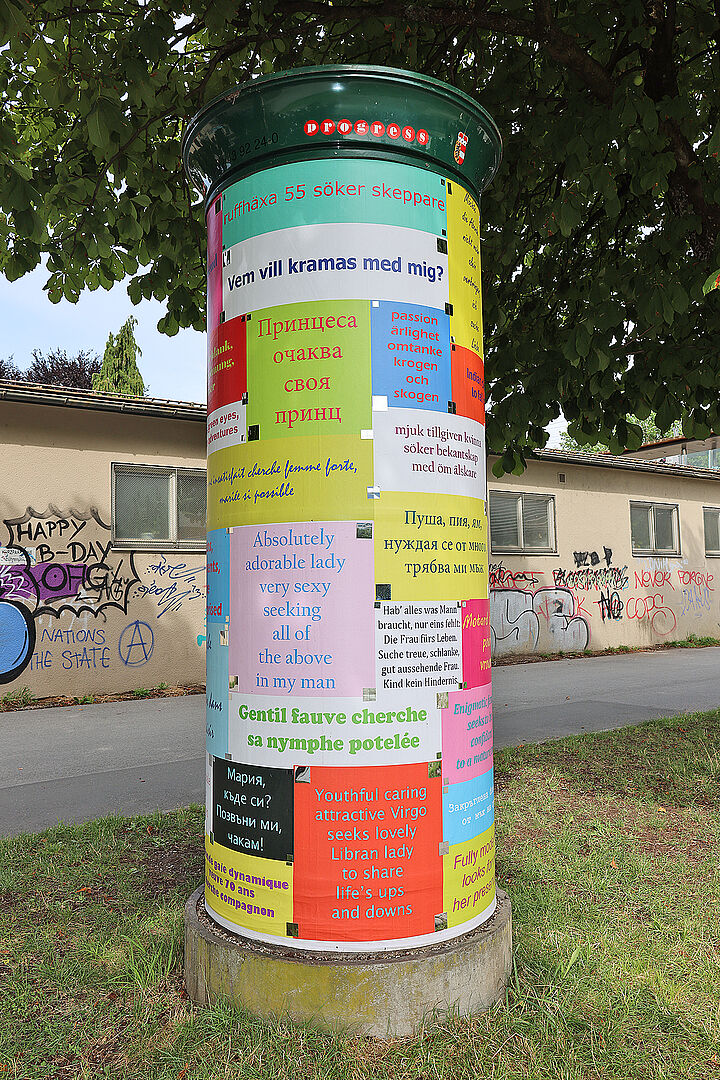 progress
3 92 24-0
ruffhäxa 55 söker skeppare
Vem vill kramas med mig?
Принцеса
очаква
своя
принц
passion
ärlighet
omtanke
krogen
och
skogen
mjuk tillgiven kvinna
söker bekantskap
med öm älskare
insatisfait cherche femme forte,
mariée si possible
Пуша, пия, ям,
нуждая се от много
трябва ми
Absolutely
adorable lady
very sexy
seeking
all of
the above
in my man
Hab' alles was Mann
braucht, nur eins fehlt:
Die Frau fürs Leben.
Suche treue, schlanke,
gut aussehende Frau.
Kind kein Hindernis.
Gentil fauve cherche
sa nymphe potelée
seeks
to a
Мария,
къде си?
Позвъни ми,
чакам!
Youthful caring
attractive Virgo
seeks lovely
Libran lady
to share
life's ups
and downs
gaie dynamique
70 ans
compagnon
Fully
looks
her
eyes
adventures
HAPPY
B-DAY
NATIONS
THE STATE
A
NEKRON
FORGET
COPS